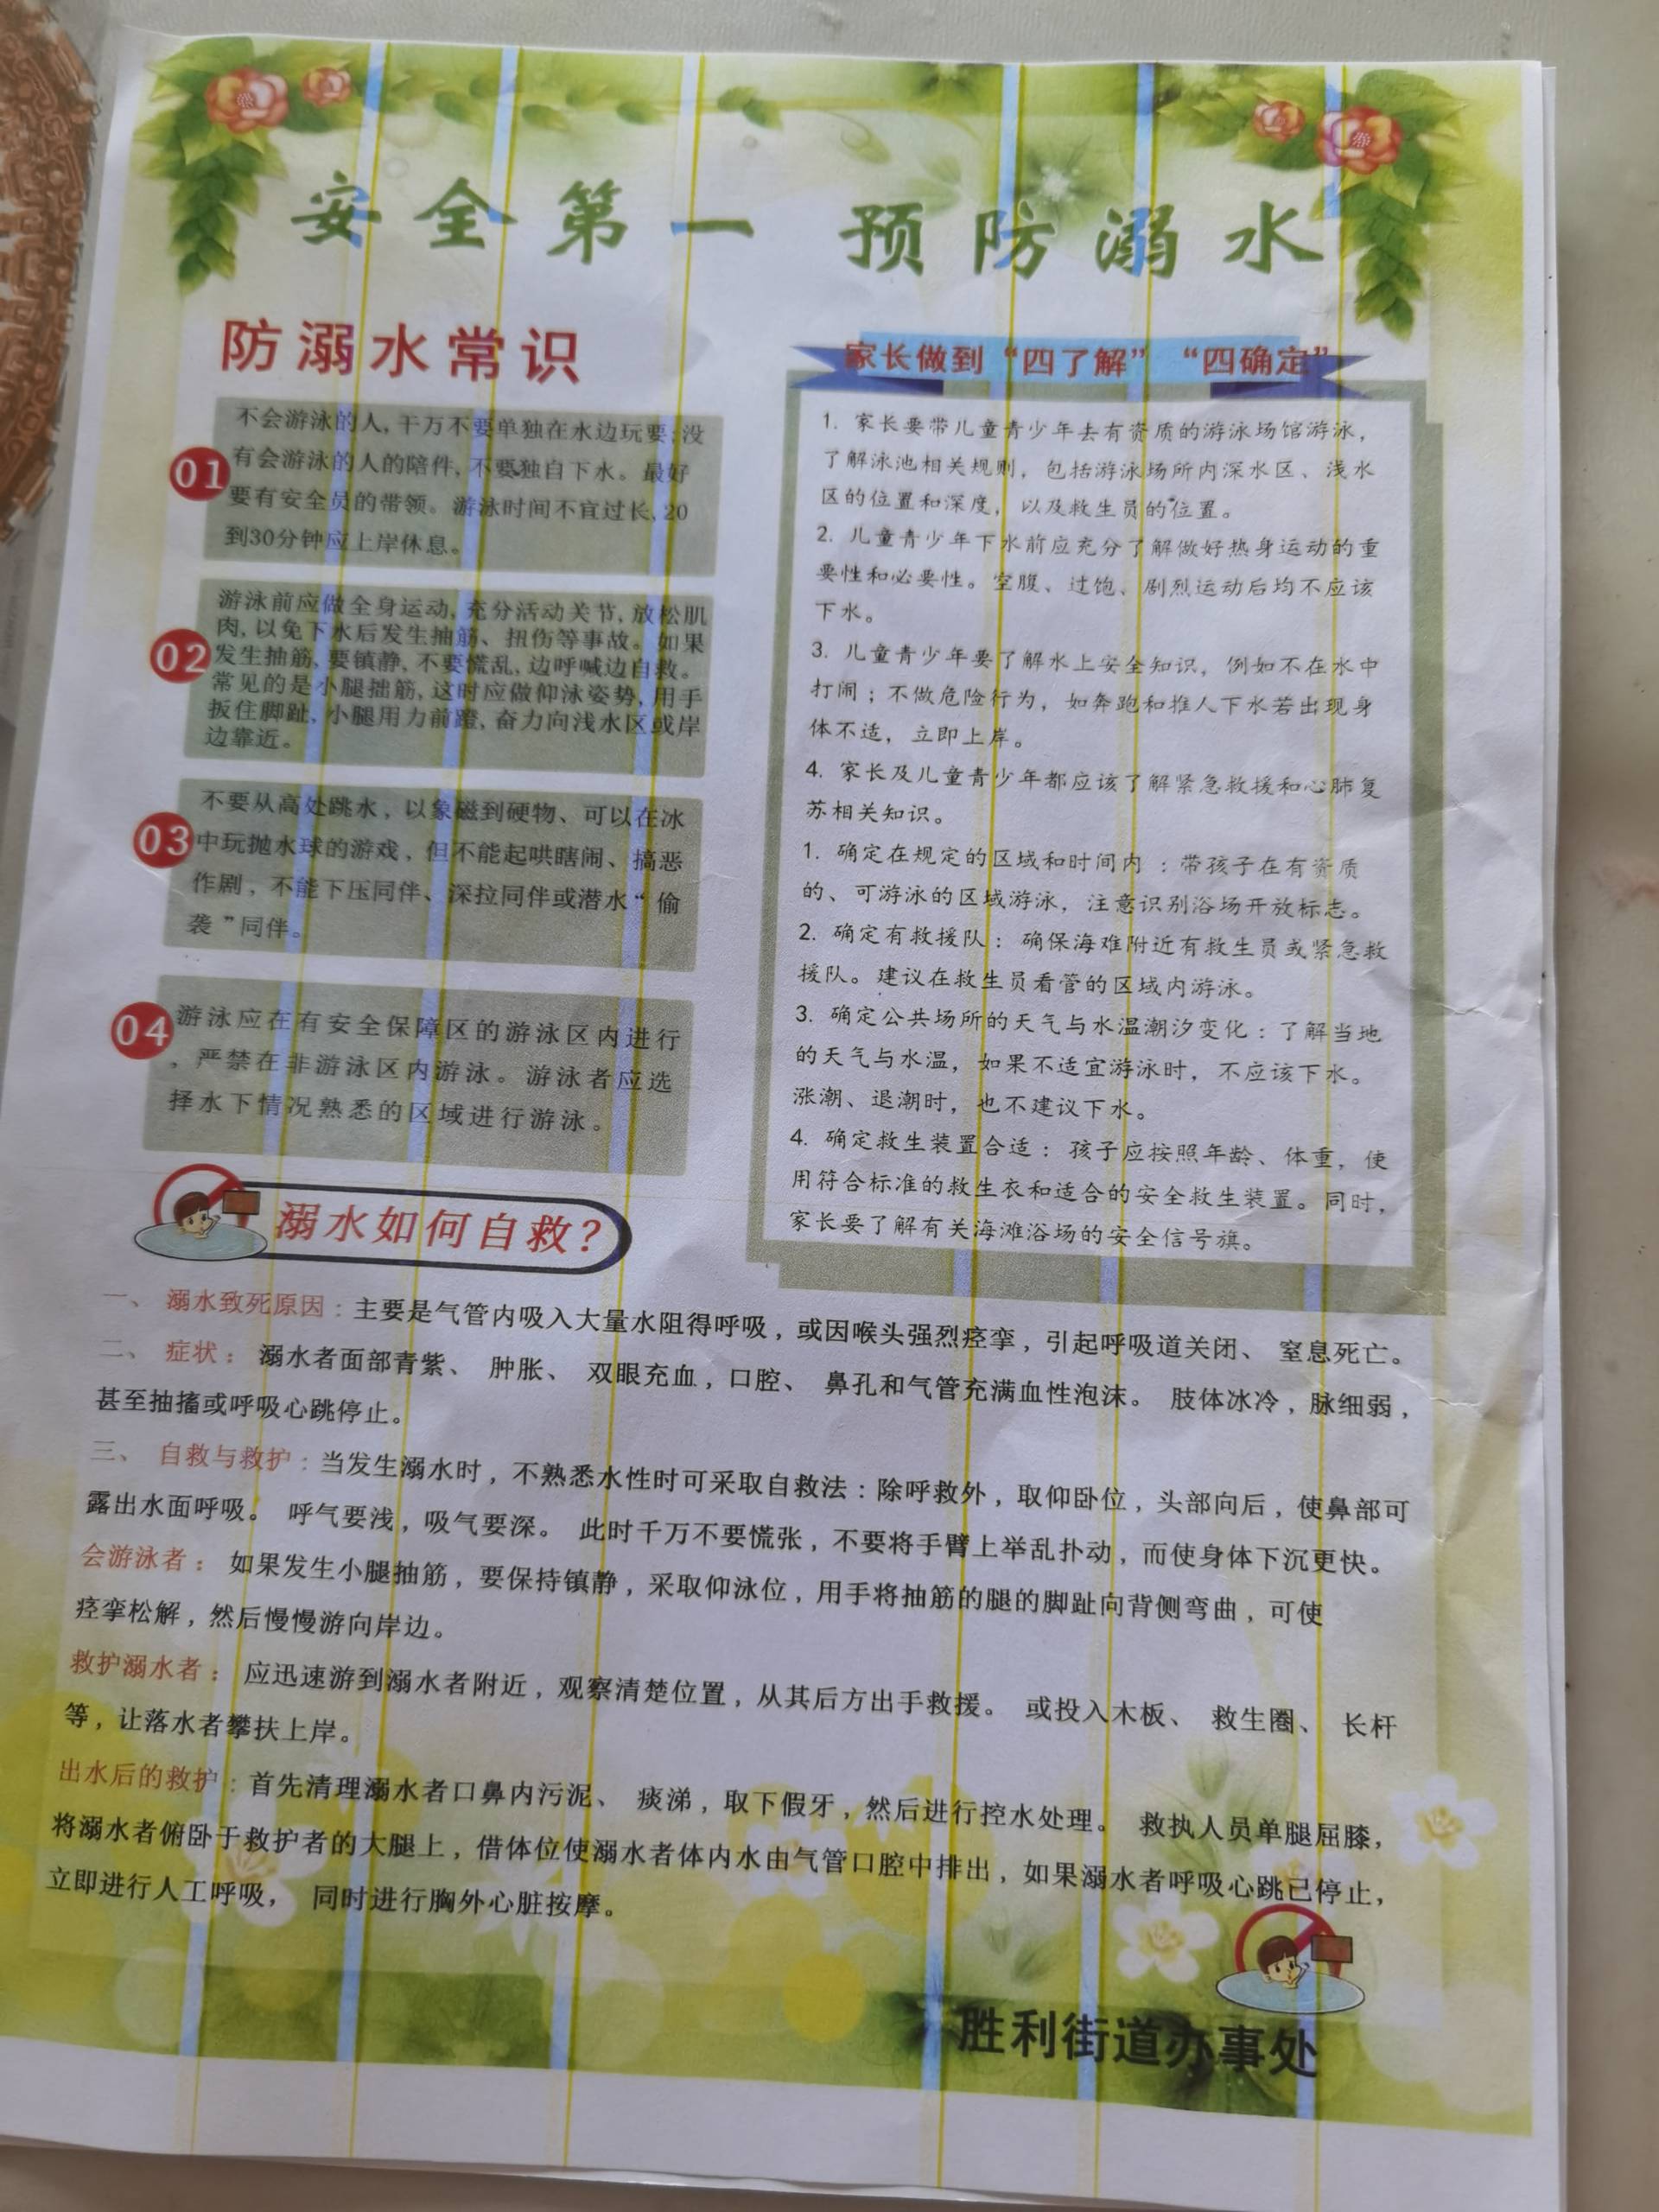 安全第一 预防溺水
防溺水常识
01
不会游泳的人,干万不要单独在水边玩耍;没
有会游泳的人的陪件,不要独自下水。最好
要有安全员的带领。游泳时间不宜过长,20
到30分钟应上岸休息。
02
游泳前应做全身运动,充分活动关节,放松肌
肉,以免下水后发生抽筋、扭伤等事故。如果
发生抽筋,要镇静,不要慌乱,边呼喊边自救。
常见的是小腿抽筋,这时应做仰泳姿势,用手
扳住脚趾,小腿用力前蹬,奋力向浅水区或岸
边靠近。
03
不要从高处跳水，以象磁到硬物、可以在冰
中玩抛水球的游戏，但不能起哄瞎闹、搞恶
作剧，不能下压同伴、深拉同伴或潜水“偷
袭”同伴。
04
游泳应在有安全保障区的游泳区内进行
，严禁在非游泳区内游泳。游泳者应选
择水下情况熟悉的区域进行游泳。
家长做到“四了解”“四确定”
1. 家长要带儿童青少年去有资质的游泳场馆游泳，
了解泳池相关规则，包括游泳场所内深水区、浅水
区的位置和深度，以及救生员的位置。
2. 儿童青少年下水前应充分了解做好热身运动的重
要性和必要性。空腹、过饱、剧烈运动后均不应该
下水。
3. 儿童青少年要了解水上安全知识，例如不在水中
打闹；不做危险行为，如奔跑和推人下水若出现身
体不适，立即上岸。
4. 家长及儿童青少年都应该了解紧急救援和心肺复
苏相关知识。
1. 确定在规定的区域和时间内：带孩子在有资质
的、可游泳的区域游泳，注意识别浴场开放标志。
2. 确定有救援队：确保海难附近有救生员或紧急救
援队。建议在救生员看管的区域内游泳。
3. 确定公共场所的天气与水温潮汐变化：了解当地
的天气与水温，如果不适宜游泳时，不应该下水。
涨潮、退潮时，也不建议下水。
4. 确定救生装置合适：孩子应按照年龄、体重，使
用符合标准的救生衣和适合的安全救生装置。同时，
家长要了解有关海滩浴场的安全信号旗。
溺水如何自救？
一、 溺水致死原因：主要是气管内吸入大量水阻得呼吸，或因喉头强烈痉挛，引起呼吸道关闭、 窒息死亡。
二、 症状： 溺水者面部青紫、 肿胀、 双眼充血，口腔、 鼻孔和气管充满血性泡沫。 肢体冰冷，脉细弱，
甚至抽搐或呼吸心跳停止。
三、 自救与救护：当发生溺水时，不熟悉水性时可采取自救法：除呼救外，取仰卧位，头部向后，使鼻部可
露出水面呼吸。 呼气要浅，吸气要深。 此时千万不要慌张，不要将手臂上举乱扑动，而使身体下沉更快。
会游泳者： 如果发生小腿抽筋，要保持镇静，采取仰泳位，用手将抽筋的腿的脚趾向背侧弯曲，可使
痉挛松解，然后慢慢游向岸边。
救护溺水者： 应迅速游到溺水者附近，观察清楚位置，从其后方出手救援。 或投入木板、 救生圈、 长杆
等，让落水者攀扶上岸。
出水后的救护：首先清理溺水者口鼻内污泥、 痰涕，取下假牙，然后进行控水处理。 救执人员单腿屈膝，
将溺水者俯卧于救护者的大腿上，借体位使溺水者体内水由气管口腔中排出，如果溺水者呼吸心跳已停止，
立即进行人工呼吸， 同时进行胸外心脏按摩。
胜利街道办事处